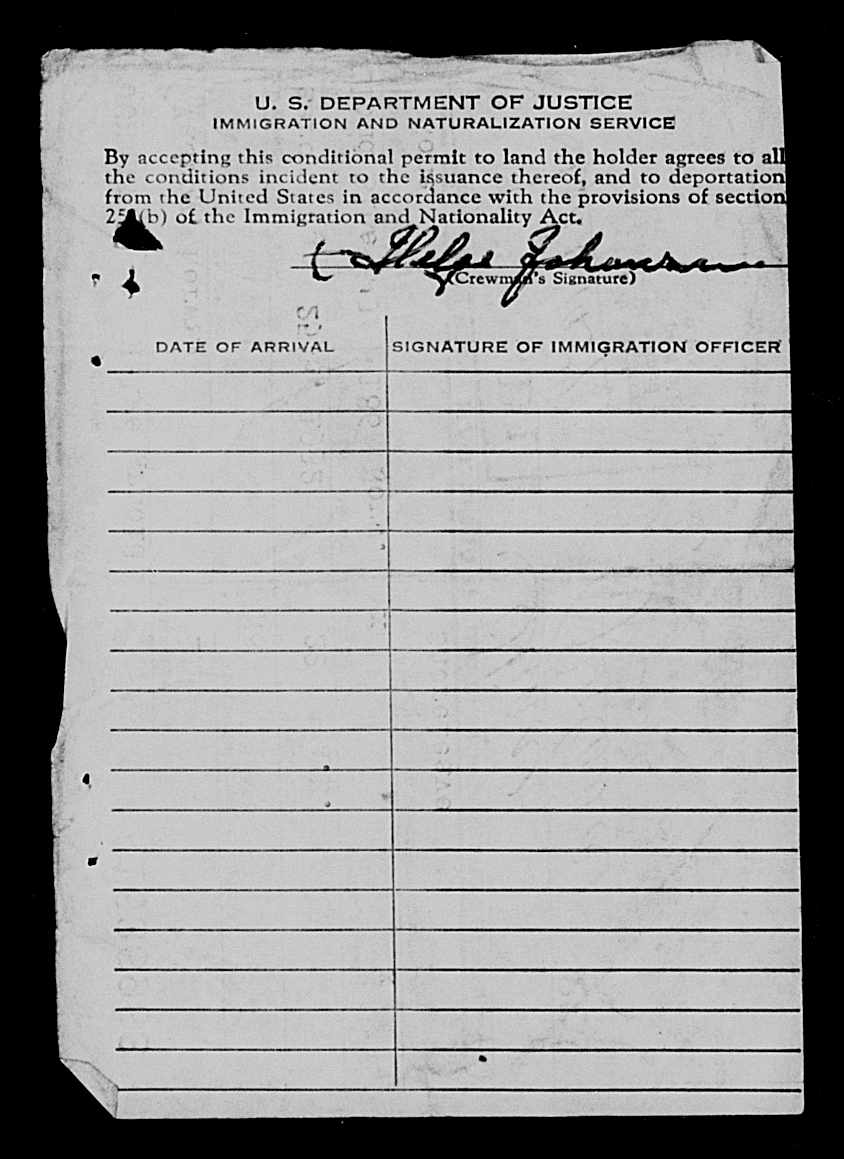 U. S. DEPARTMENT OF JUSTICE
IMMIGRATION AND NATURALIZATION SERVICE
By accepting this conditional permit to land the holder agrees to all
the conditions incident to the issuance thereof, and to deportation
from the United States in accordance with the provisions of section
(b) of the Immigration and Nationality Act.
(Crewman's Signature)
DATE OF ARRIVAL SIGNATURE OF IMMIGRATION OFFICER